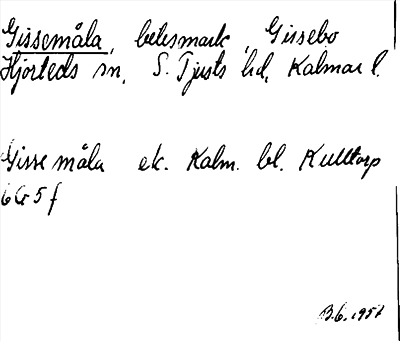 Gissemåla, betesmark, Gissebo
Hjorteds sn, S. Tjusts hd, Kalmar l.
Gissemåla ek. Kalm. bl. Kulltorp
6G5f
3.6.195